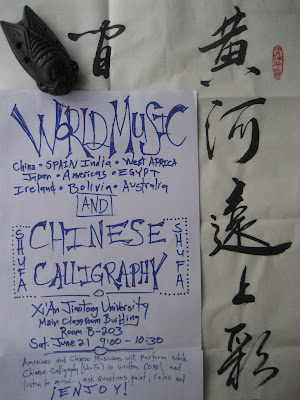 黄河遠上彩
間
WORLD MUSIC
China • SPAIN India • West AFRICA
Japan • Americas • EGYPT
Ireland • Bolivia • Australia
AND
SHUFA
CHINESE
CALLIGRAPHY
SHUFA
Xi'An Jiaotong University
Main Classroom Building
Room B-203
Sat. June 21 9:00 - 10:30
American and Chinese Musicians will perform while
Chinese Calligraphy (ShuFa) is written and
listen to music, ask questions, paint, relax and
¡ENJOY!